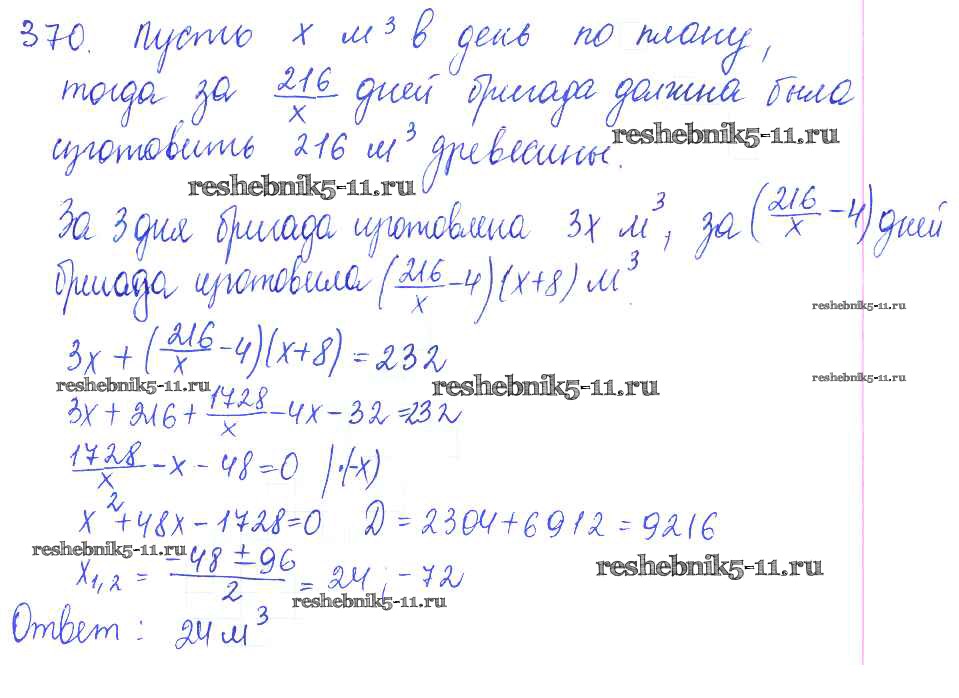 370. Пусть x м³ в день по плану,
тогда за 216/x дней бригада должна была
reshebnik5-11.ru
изготовить 216 м³ древесины.
reshebnik5-11.ru
За 3 дня бригада изготовлена 3x м³, за (216/x - 4) дней
бригада изготовила (216/x - 4)(x+8) м³
reshebnik5-11.ru
3x + (216/x - 4)(x+8) = 232
reshebnik5-11.ru reshebnik5-11.ru reshebnik5-11.ru
3x + 216 + 1728/x - 4x - 32 = 232
1728/x - x - 48 = 0 |·(-x)
x² + 48x - 1728 = 0 D = 2304 + 6912 = 9216
reshebnik5-11.ru reshebnik5-11.ru
x₁,₂ = (-48 ± 96)/2 = 24 ; -72
reshebnik5-11.ru
Ответ: 24 м³